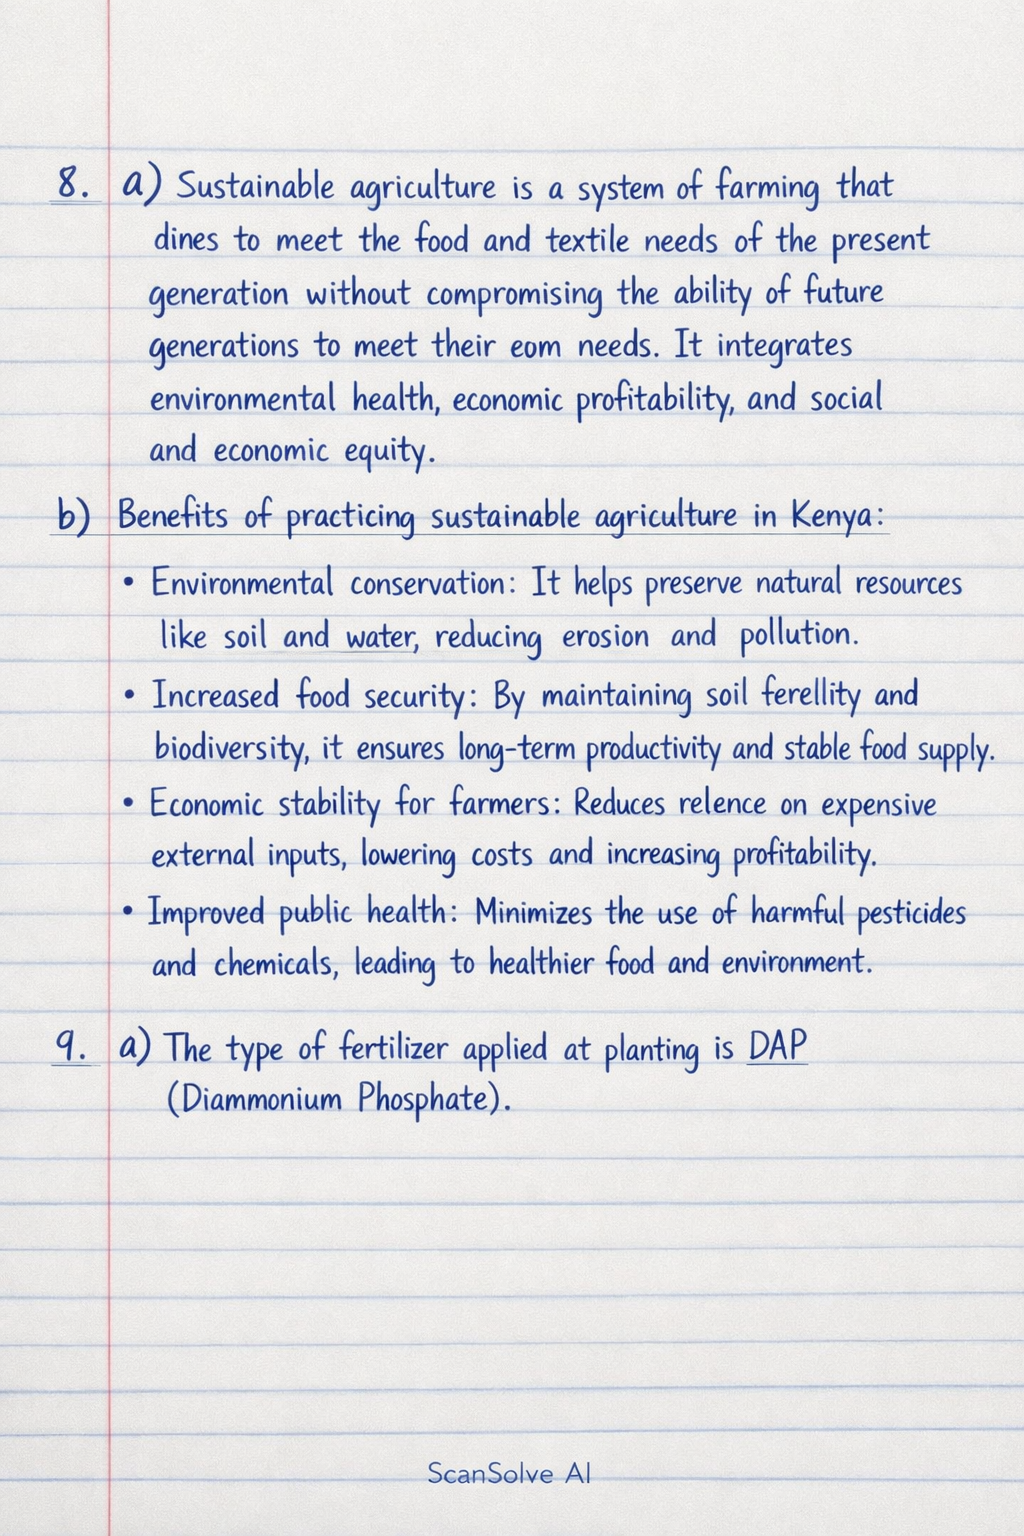 8. a) Sustainable agriculture is a system of farming that
dines to meet the food and textile needs of the present
generation without compromising the ability of future
generations to meet their eom needs. It integrates
environmental health, economic profitability, and social
and economic equity.
b) Benefits of practicing sustainable agriculture in Kenya:
• Environmental conservation: It helps preserve natural resources
like soil and water, reducing erosion and pollution.
• Increased food security: By maintaining soil ferellity and
biodiversity, it ensures long-term productivity and stable food supply.
• Economic stability for farmers: Reduces relence on expensive
external inputs, lowering costs and increasing profitability.
• Improved public health: Minimizes the use of harmful pesticides
and chemicals, leading to healthier food and environment.
9. a) The type of fertilizer applied at planting is DAP
(Diammonium Phosphate).
ScanSolve AI